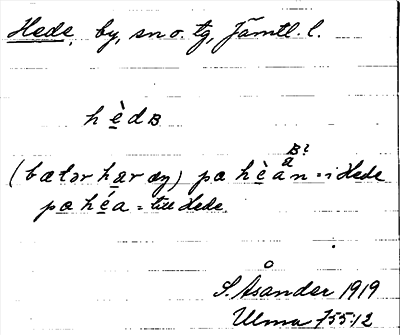 Hede, by, sn o. tg, Jämtl. l.
hèdʙ
ʙ?
(bætər hær æy) pæ hèan = i Hede
pæ héa = till Hede.
S. Åsander 1919
Ulma 755:12